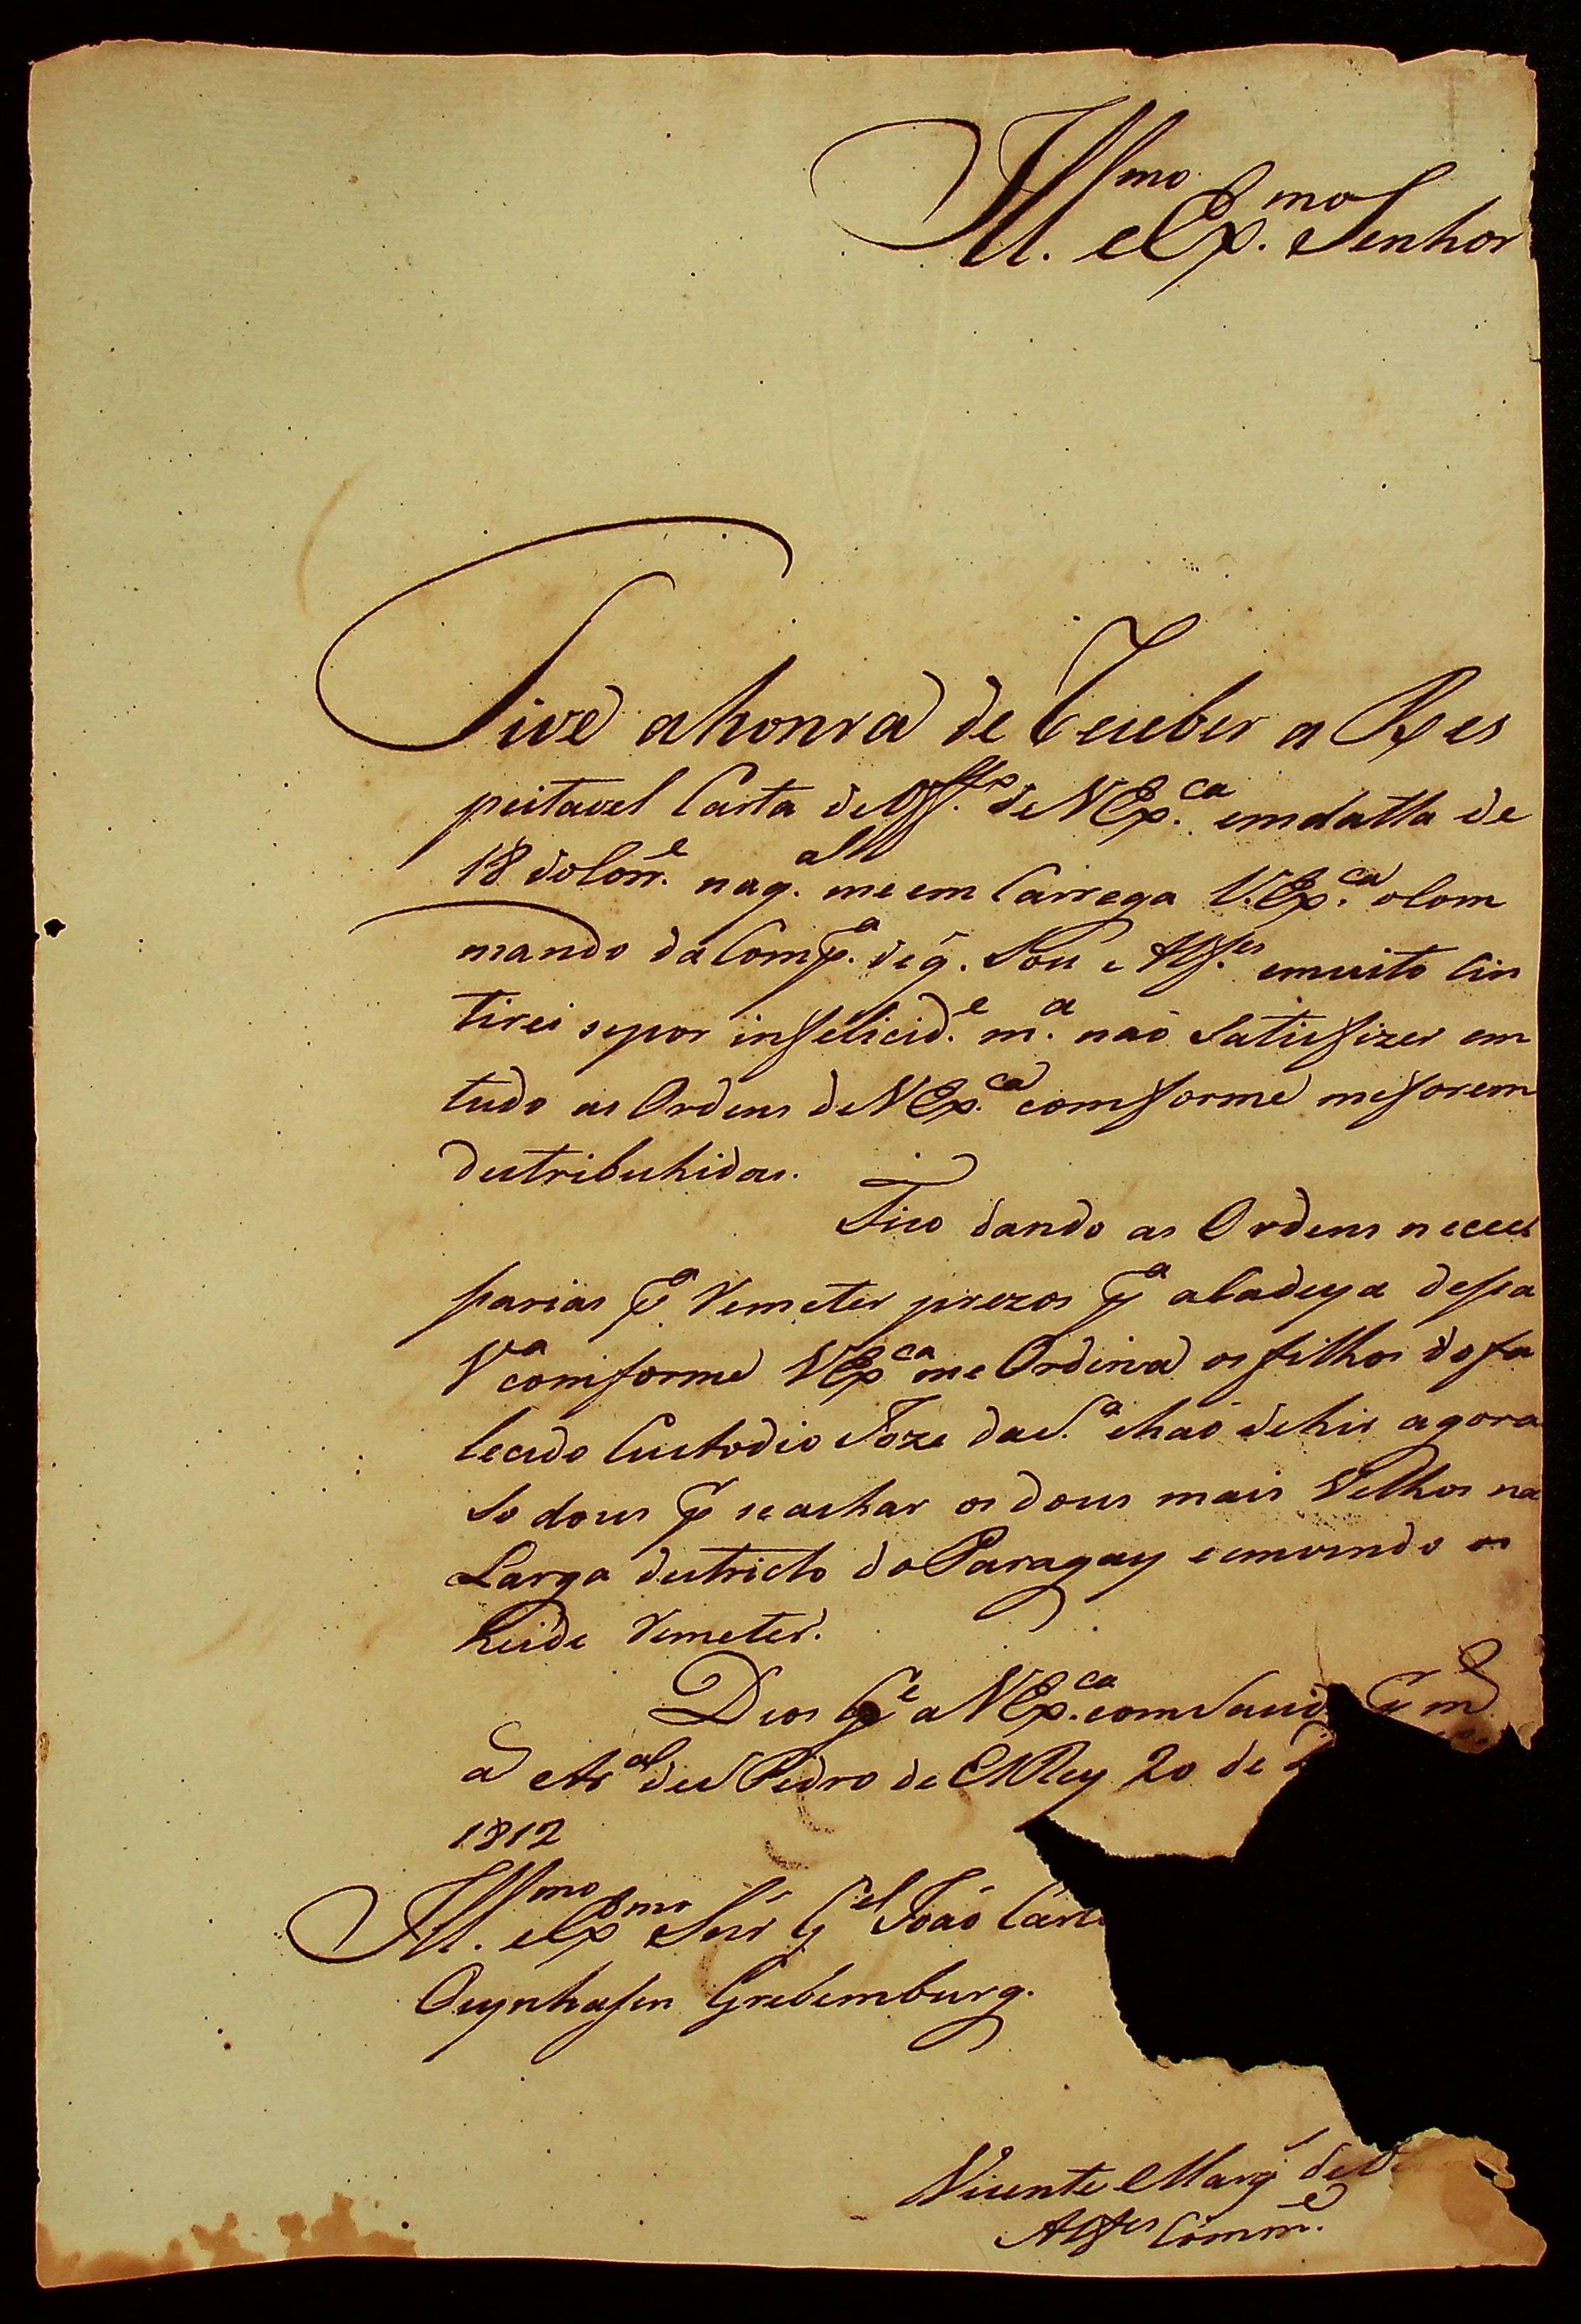 Ill.mo e Ex.mo Senhor
Tive a honra de Receber a Res
peitavel Carta de Off.o de V Ex.ca em datta de
18 do Corr.e na q.al me em Carrega V. Ex.ca o Com
mando da Comp.a de q. Sou Alf.es e muito Cin
tirei se por infelicid.e m.a naõ Satisfizer em
tudo as Ordens de V Ex.ca comforme me forem
destribuhidas.
Fico dando as Ordens neces
sarias p.a Remeter prezos p.a a Cadeya dessa
V.a comforme V Ex.ca me Ordena os filhos do fa
lecido Custodio Joze da S.a e haõ de hir agora
So dous p se achar os dous mais Velhos na
Larga destricto do Paragay e em vindo os
hei de Remeter.
Deos G.e a V Ex.ca com Saud p m
a Ar.al de S Pedro de El Rey 20 de
1812
Ill.mo e Ex.mo Snr G.el Joaõ Car
Oeynhasen Grebemburg.
Vicente Marq de
Alf.es Comm.e